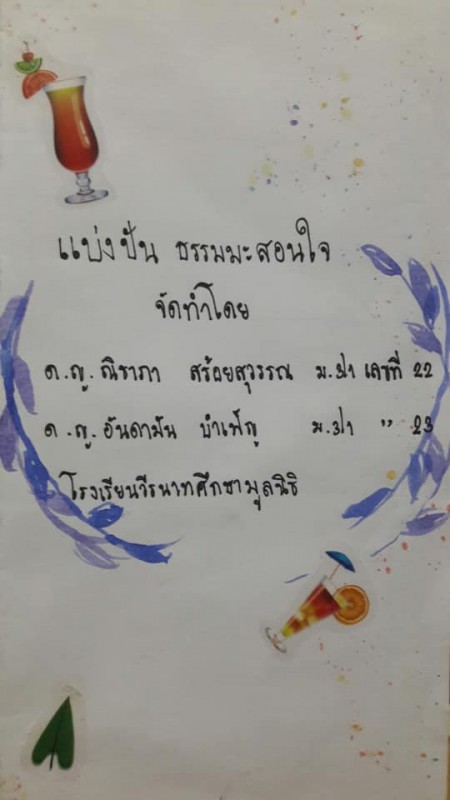 แบ่งปัน ธรรมมะสอนใจ
จัดทำโดย
ด.ญ. ณิชาภา สร้อยสุวรรณ ม.3/1 เลขที่ 22
ด.ญ. อันดามัน บำเพ็ญ ม.3/1 " 23
โรงเรียนวีรนาทศึกษามูลนิธิ